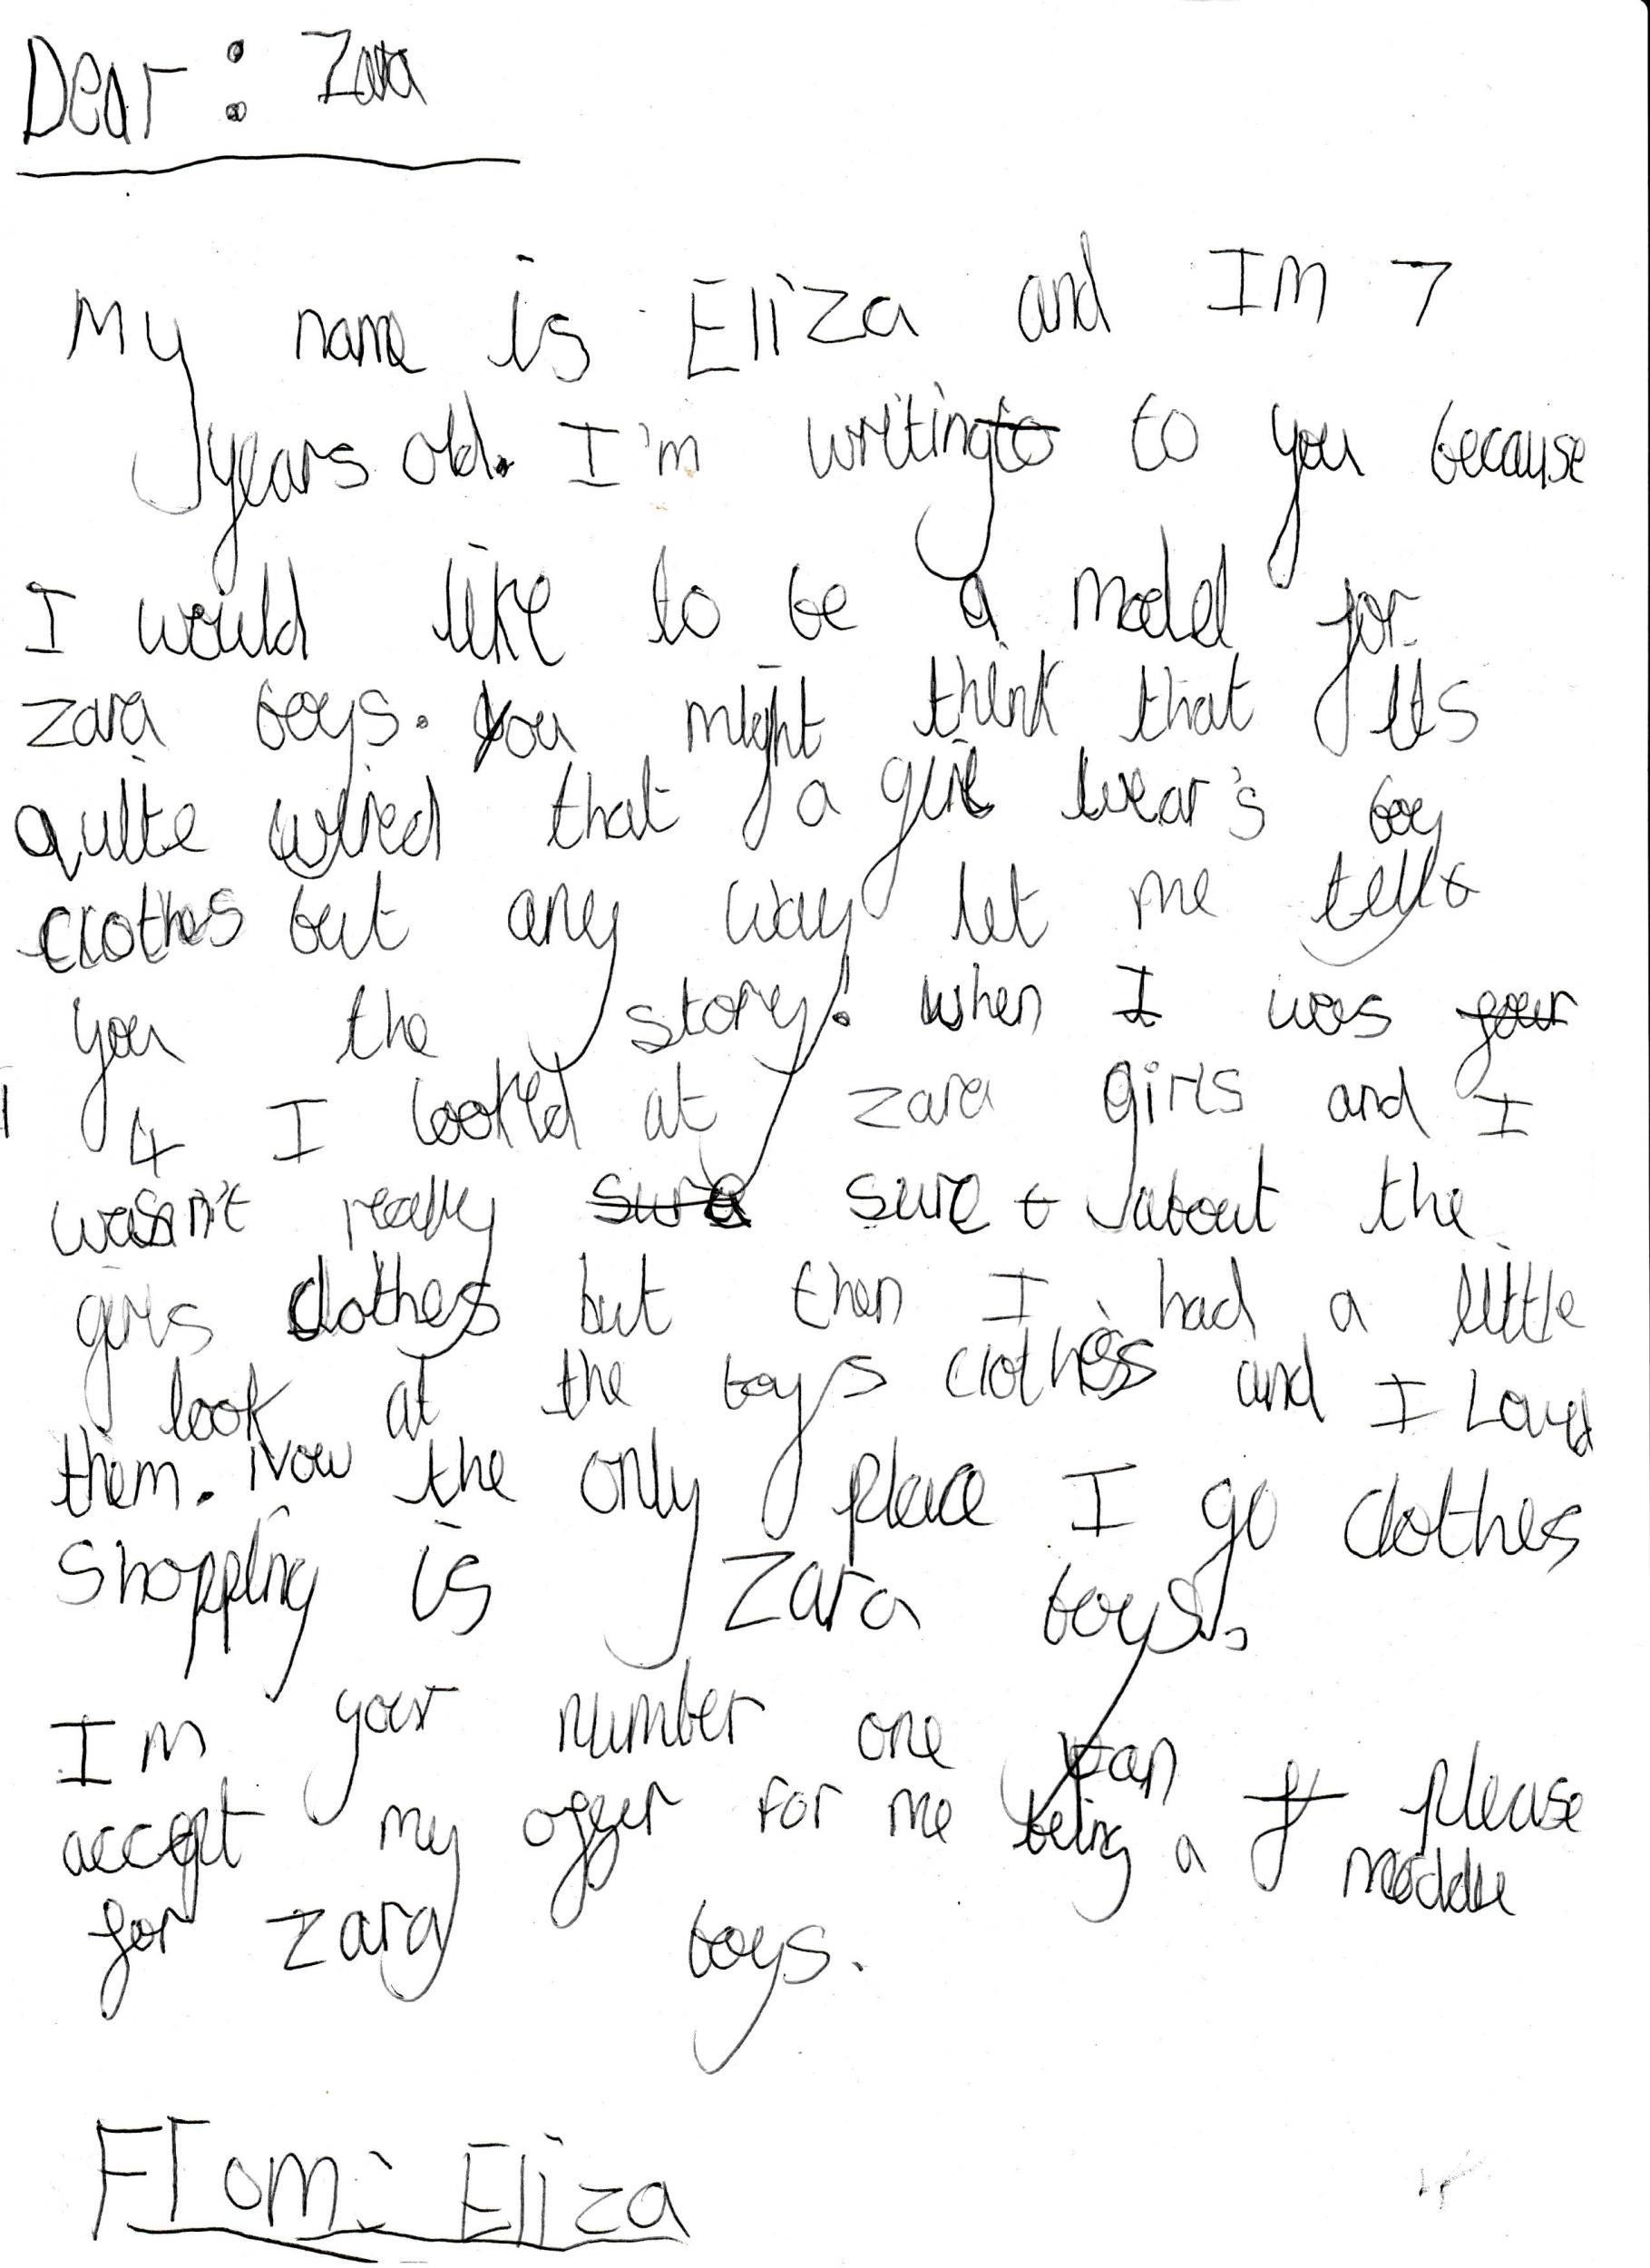 Dear: Zara
My name is Eliza and Im 7
years old. I'm writing to to you because
I would like to be a model for
zara boys. You might think that its
quite wired that a girl wear's boy
clothes but any way let me tell
you the story. when I was four
4 I looked at zara girls and I
wasn't really sure sure t about the
girls clothes but then I had a little
look at the boys clothes and I Loved
them. Now the only place I go clothes
shopping is Zara boys.
Im your number one fan f please
accept my offer for me being a moddle
for zara boys.
From: Eliza